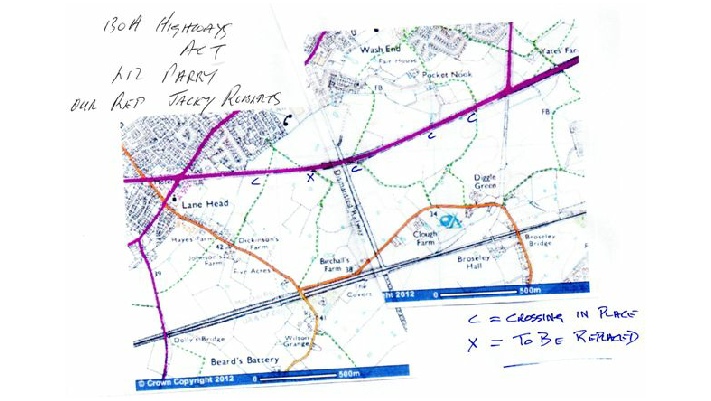 130A HIGHWAYS
ACT
LIZ PARRY
OUR REF JACKY ROBERTS
Wash End
Pocket Nook
FB
FB
C
C
C
X
C
Lane Head
Diggle Green
14
Clough Farm
Dismantled Railway
Hayes Farm
42
Dickinson's Farm
Five Acres
Birchall's Farm
18
Broseley Hall
Broseley Bridge
2012
0 500m
Wilson Grange
Beard's Battery
© Crown Copyright 2012 0 500m
C = CROSSING IN PLACE
X = TO BE REPLACED